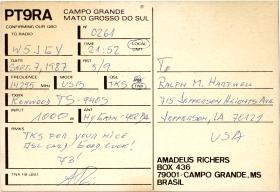 PT9RA CAMPO GRANDE
MATO GROSSO DO SUL
CONFIRMING OUR QSO Nº 0261
TO RADIO TIME LOCAL
W5JEY 21:52 GMT
DATE RST
SEPT. 7, 1987 5/9
FREQUENCE MODE QSL
14295 MHZ USB TKS
TRX
KENWOOD TS-940S
INPUT ANT
1000 W HY GAIN
RMKS
TKS FOR YOUR NICE
QSL CARD GOOD LUCK!
73!
To
RALPH M. HARTWELL
715 JEFFERSON HEIGHTS AVE
JEFFERSON, LA 70121
USA
AMADEUS RICHERS
BOX 436
79001-CAMPO GRANDE, MS
BRASIL